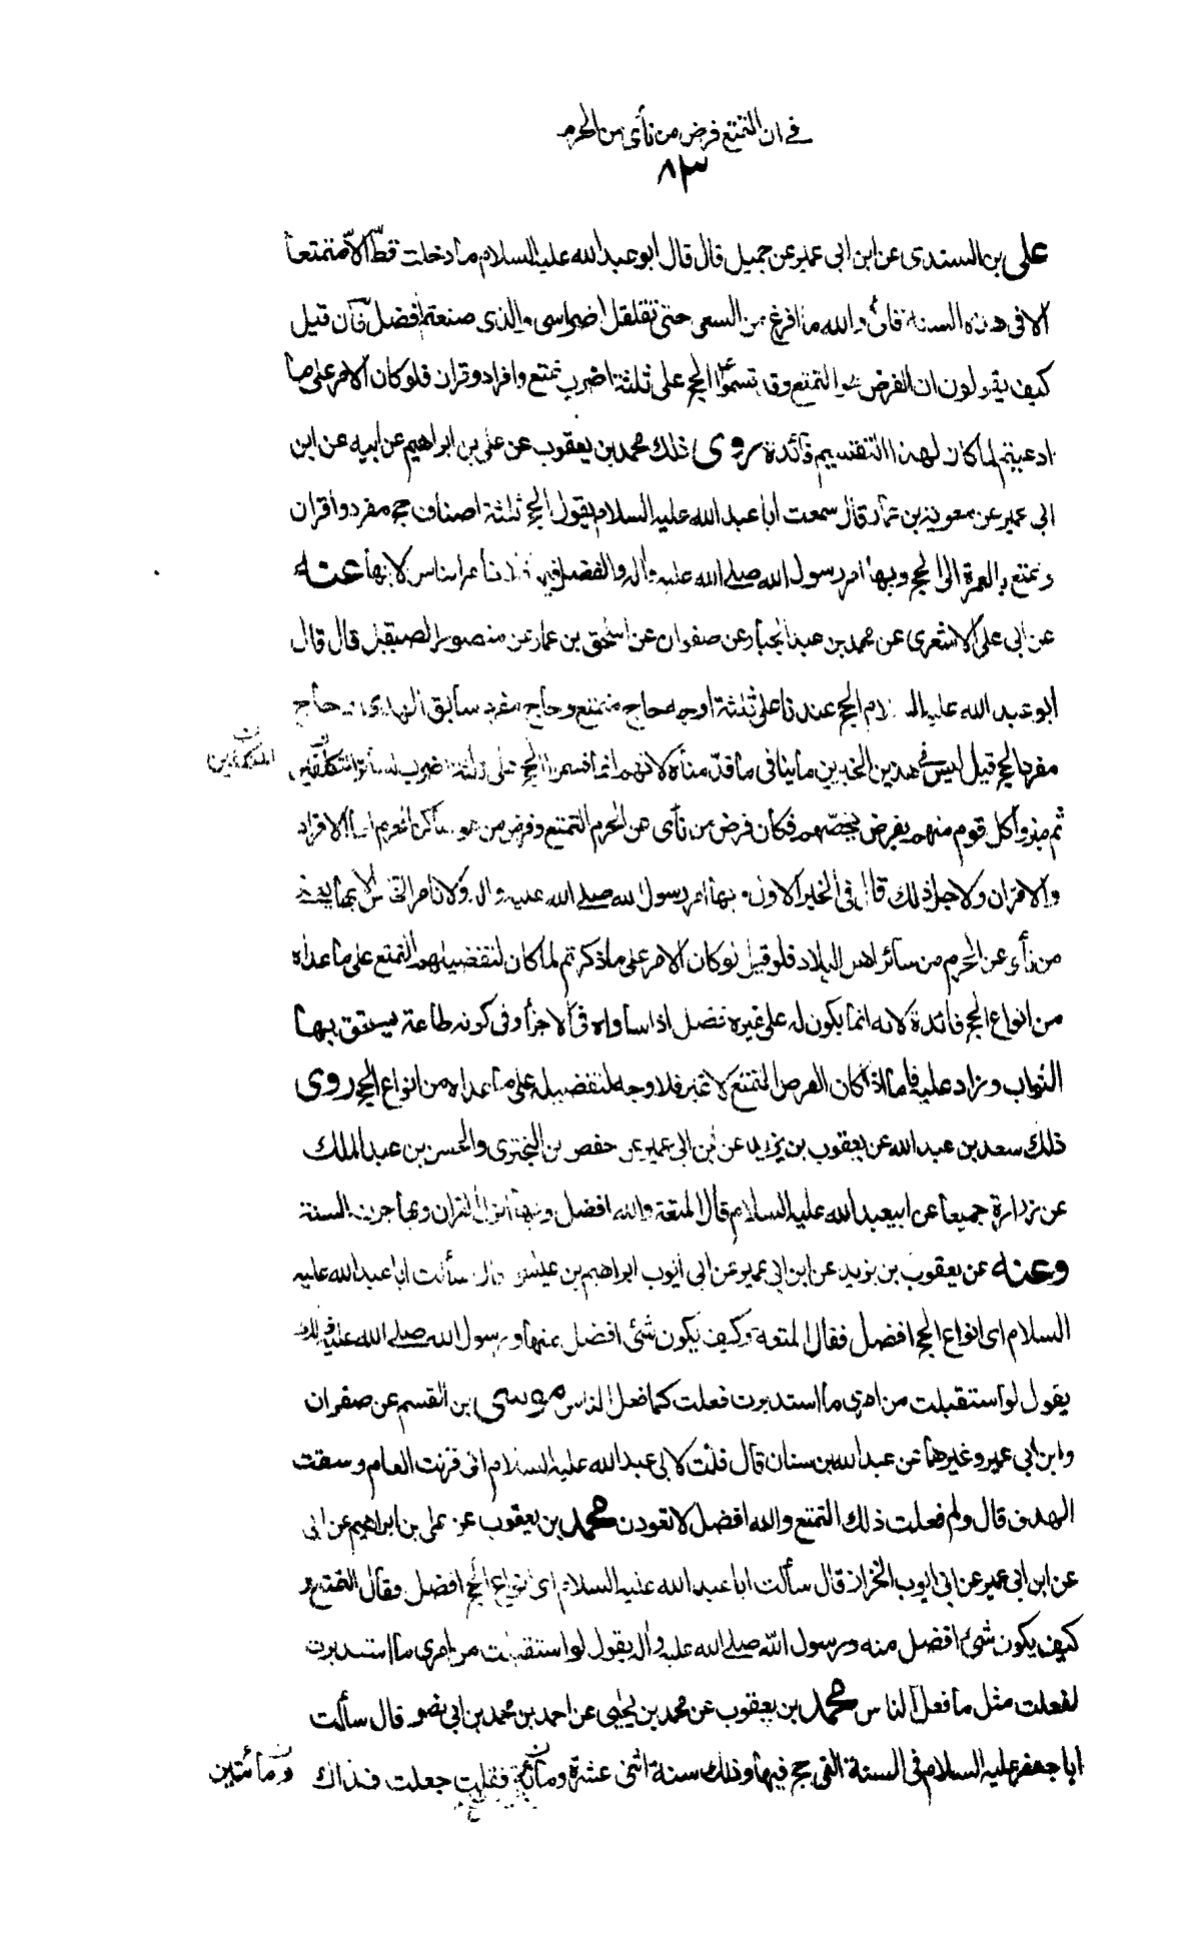 في ان التمتع فرض من نأى من الحرم
٨٣
على بن السندى عن ابن ابى عمير عن جميل قال قال ابو عبد الله عليه السلام ما دخلت قطّ الاّ متمتعا
الا فى هذه السنة فانى والله ما افرغ من السعى حتى تتقلقل اضراسى والذى صنعتم افضل فان قيل
كيف يقولون ان الفرض هو التمتع وقد قسموا الحج على ثلثة اضرب تمتع وافراد وقران فلو كان الامر على ما
ادعيتم لما كان لهذا التقسيم فائدة روى ذلك محمد بن يعقوب عن على بن ابراهيم عن ابيه عن ابن
ابى عمير عن معوية بن عمار قال سمعت ابا عبد الله عليه السلام يقول الحج ثلثة اصناف حج مفرد واقران
وتمتع بالعمرة الى الحج وبها امر رسول الله صلى الله عليه واله والفضل فيها ولا نأمر الناس الا بها عنه
عن ابى على الاشعرى عن محمد بن عبد الجبار عن صفوان عن اسحق بن عمار عن منصور الصيقل قال قال
ابو عبد الله عليه السلام الحج عندنا على ثلثة اوجه حاج متمتع وحاج مفرد سابق الهدى وحاج
مفرد للحج قيل ليس فى هذين الخبرين ما ينافى ما قدّمناه لانهم انما قسموا الحج على ثلثة اضرب لسائر المتكلفين
المكلفين
ثم ميزوا كل قوم منهم بفرض يخصّهم فكان فرض من نأى عن الحرم التمتع وفرض من هو ساكن الحرم اما الافراد
والاقران ولاجل ذلك قال فى الخبر الاول وبها امر رسول الله صلى الله عليه واله ولا نامر الناس الا بها يعنى
من نأى عن الحرم من سائر اهل البلاد فلو قيل لو كان الامر على ما ذكرتم لما كان لتفضيلهم التمتع على ما عداه
من انواع الحج فائدة لانه انما يكون له على غيره فضل اذا ساواه فى الاجزاء وفى كونه طاعة يستحق بها
الثواب وزاد عليه فاما اذا كان الفرض التمتع لا غير فلا وجه لتفضيله على ما عداه من انواع الحج روى
ذلك سعد بن عبد الله عن يعقوب بن يزيد عن ابن ابى عمير عن حفص بن البخترى والحسن بن عبد الملك
عن زرارة جميعا عن ابيعبد الله عليه السلام قال المتعة والله افضل وبها نزل القران وبها جرت السنة
وعنه عن يعقوب بن يزيد عن ابن ابى عمير عن ابى ايوب ابراهيم بن عيسى قال سألت ابا عبد الله عليه
السلام اى انواع الحج افضل فقال المتعة وكيف يكون شئ افضل منها ورسول الله صلى الله عليه واله
يقول لو استقبلت من امرى ما استدبرت فعلت كما فعل الناس موسى بن القسم عن صفوان
وابن ابى عمير وغيرهما عن عبد الله بن سنان قال قلت لابى عبد الله عليه السلام انى قرنت العام وسقت
الهدى قال ولم فعلت ذلك التمتع والله افضل لا تعودن محمد بن يعقوب عن على بن ابراهيم عن ابى
عن ابن ابى عمير عن ابى ايوب الخزاز قال سألت ابا عبد الله عليه السلام اى انواع الحج افضل فقال التمتع و
كيف يكون شئ افضل منه ورسول الله صلى الله عليه واله يقول لو استقبلت من امرى ما استدبرت
لفعلت مثل ما فعل الناس محمد بن يعقوب عن محمد بن يحيى عن احمد بن محمد بن ابى نصر قال سألت
ابا جعفر عليه السلام فى السنة التى حج فيها وذلك سنة اثنى عشرة ومأتين فقلت جعلت فداك
ومائتين